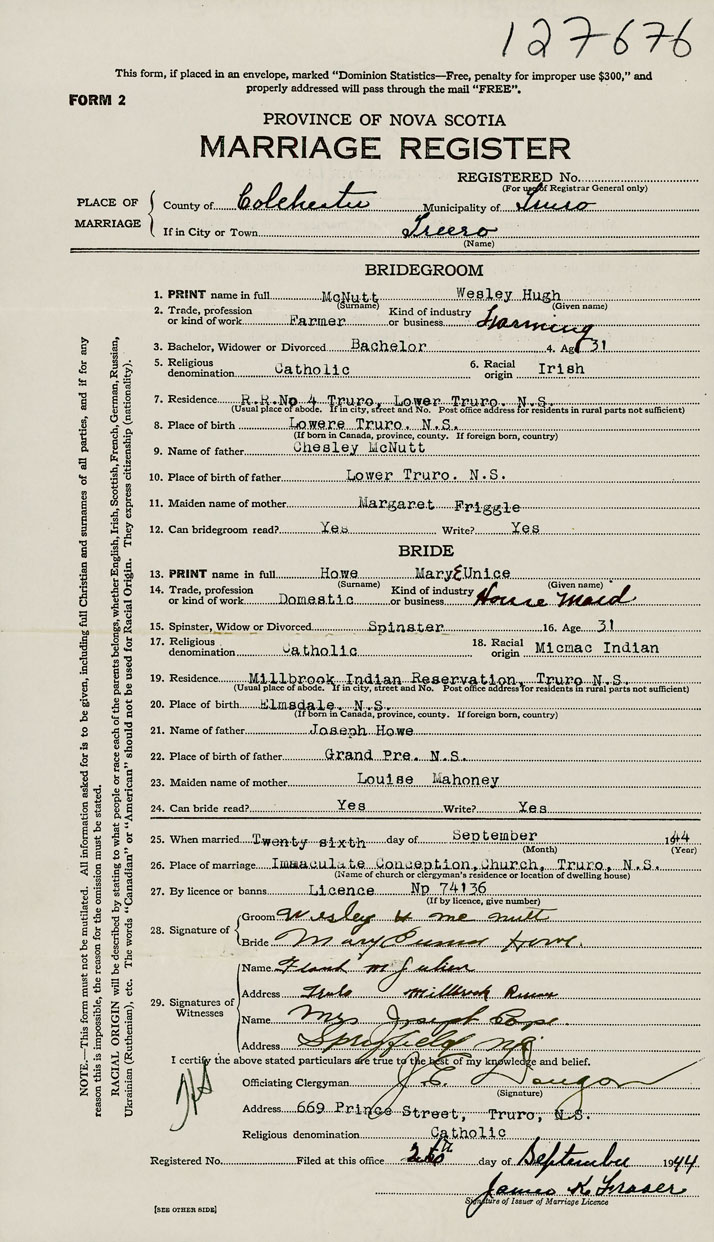 127676
This form, if placed in an envelope, marked "Dominion Statistics—Free, penalty for improper use $300," and
properly addressed will pass through the mail "FREE".
FORM 2
PROVINCE OF NOVA SCOTIA
MARRIAGE REGISTER
REGISTERED No.
(For use of Registrar General only)
PLACE OF MARRIAGE
County of Colchester Municipality of Truro
If in City or Town Truro
(Name)
BRIDEGROOM
1. PRINT name in full McNutt Wesley Hugh
(Surname) (Given name)
2. Trade, profession or kind of work Farmer Kind of industry or business Farming
3. Bachelor, Widower or Divorced Bachelor 4. Age 31
5. Religious denomination Catholic 6. Racial origin Irish
7. Residence R.R.No 4 Truro, Lower Truro. N.S.
(Usual place of abode. If in city, street and No. Post office address for residents in rural parts not sufficient)
8. Place of birth Lowere Truro. N.S.
(If born in Canada, province, county. If foreign born, country)
9. Name of father Chesley McNutt
10. Place of birth of father Lower Truro. N.S.
11. Maiden name of mother Margaret Friggle
12. Can bridegroom read? Yes Write? Yes
BRIDE
13. PRINT name in full Howe Mary EUnice
(Surname) (Given name)
14. Trade, profession or kind of work Domestic Kind of industry or business House Maid
15. Spinster, Widow or Divorced Spinster 16. Age 31
17. Religious denomination Catholic 18. Racial origin Micmac Indian
19. Residence Millbrook Indian Reservation, Truro N.S.
(Usual place of abode. If in city, street and No. Post office address for residents in rural parts not sufficient)
20. Place of birth Elmsdale. N.S.
(If born in Canada, province, county. If foreign born, country)
21. Name of father Joseph Howe
22. Place of birth of father Grand Pre. N.S.
23. Maiden name of mother Louise Mahoney
24. Can bride read? Yes Write? Yes
25. When married Twenty sixth day of September 1944
(Month) (Year)
26. Place of marriage Immaculate Conception, Church, Truro, N.S.
(Name of church or clergyman's residence or location of dwelling house)
27. By licence or banns Licence Np 74136
(If by licence, give number)
28. Signature of
Groom Wesley H Mc Nutt
Bride Mary Howe.
29. Signatures of Witnesses
Name Frank M Julien
Address Truro Millbrook
Name Mrs Joseph Pope
Address
I certify the above stated particulars are true to the best of my knowledge and belief.
Officiating Clergyman J.E.
(Signature)
Address 669 Prince Street, Truro, N.S.
Religious denomination Catholic
Registered No. Filed at this office 26th day of September 1944
James K Fraser
Signature of Issuer of Marriage Licence
[SEE OTHER SIDE]
NOTE.—This form must not be mutilated. All information asked for is to be given, including full Christian and surnames of all parties, and if for any
reason this is impossible, the reason for the omission must be stated.
RACIAL ORIGIN will be described by stating to what people or race each of the parents belongs, whether English, Irish, Scottish, French, German, Russian,
Ukrainian (Ruthenian), etc. The words "Canadian" or "American" should not be used for Racial Origin. They express citizenship (nationality).